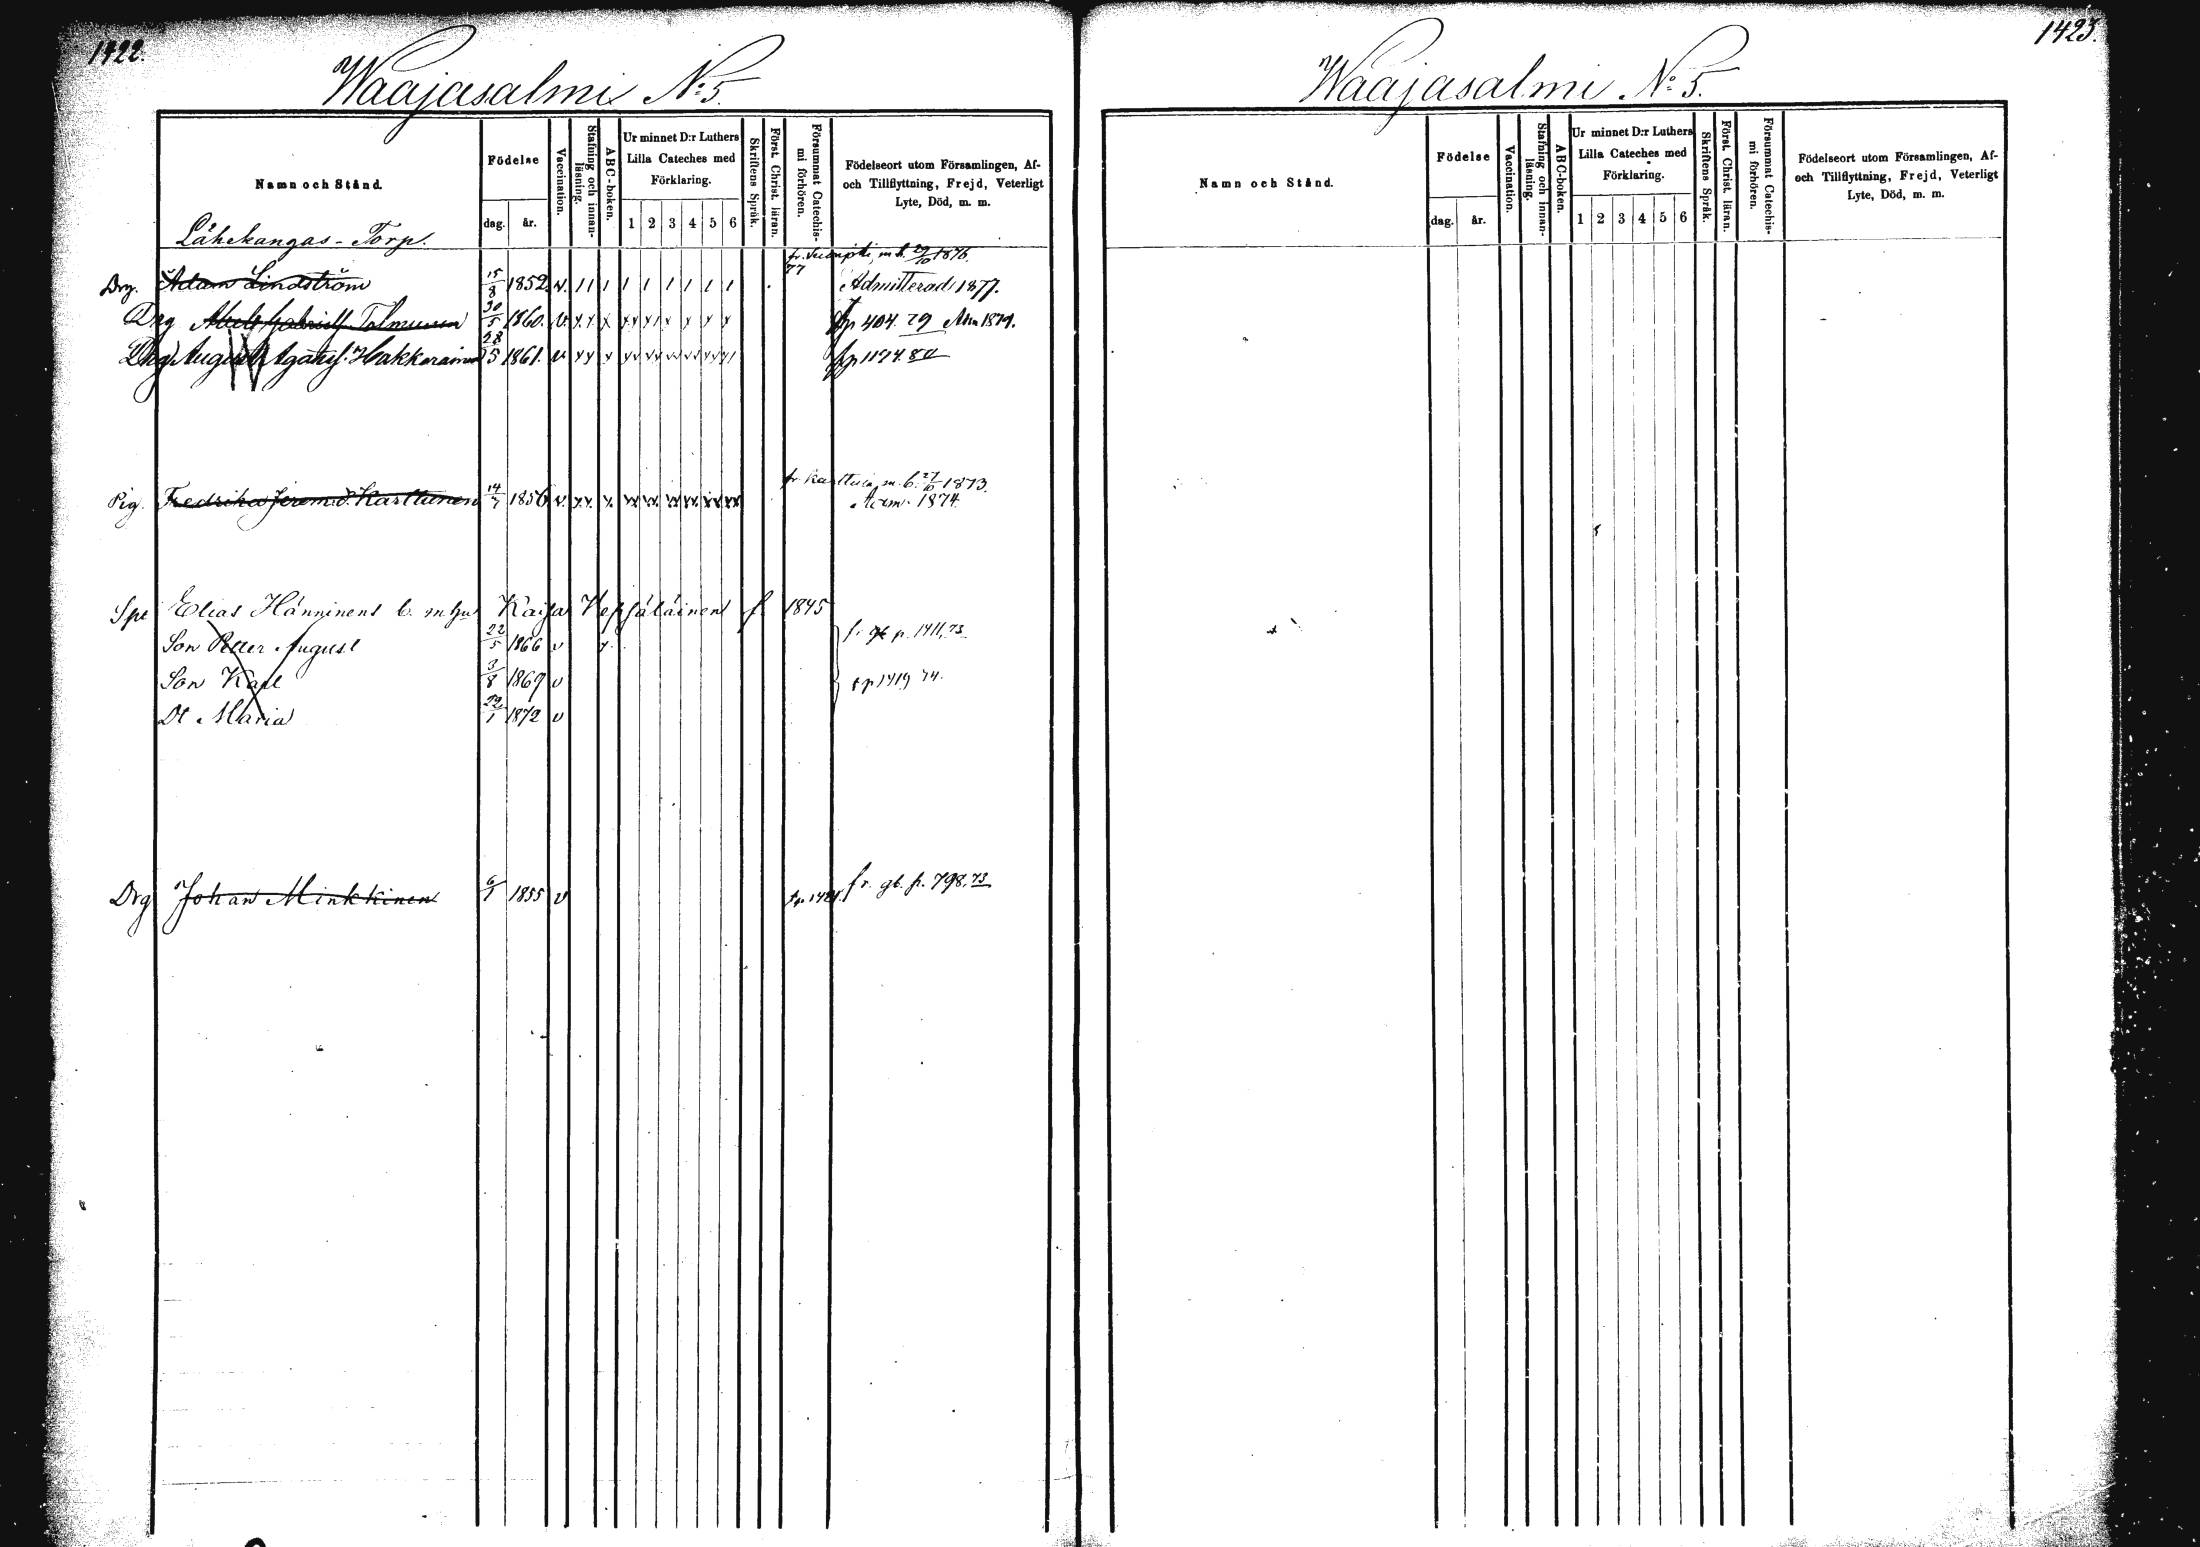 1422.
Waajasalmi No 5.
Namn och Stånd.
Födelse
dag.
år.
Vaccination.
Stafning och innan-
läsning.
ABC-boken.
Ur minnet D:r Luthers
Lilla Cateches med
Förklaring.
1 2 3 4 5 6
Skriftens Språk.
Först. Christ. läran.
Försummat Catechis-
mi förhören.
Födelseort utom Församlingen, Af-
och Tillflyttning, Frejd, Veterligt
Lyte, Död, m. m.
Lähekangas - Torp.
fr. m. b. 29/10 1876.
77
Drg. Adam Lindström 15/8 1852. v. 11 1 1 1 1 1 1 1 Admitterad 1877.
Drg Abel Gabriel Tolmunen 30/5 1860. v x x x fp 404. 79 Adm 1879.
Drg August Hakkarainen 28/5 1861. v x x x fp 1194. 80
fr. Karttula m. b. 27/10 1873.
Pig. Fredrika Jerem.d. Karttunen 14/7 1856 v. x.x. x. xx xx. xx xx. xx xx Adm. 1874.
Spt Elias Hänninens b. m hu Kaisa Kepsäläinen f. 1845
Son Petter August 22/5 1866 v x fr gb p. 1411, 73.
Son Karl 3/8 1869 v t p 1419 74.
Dt Maria 22/1 1872 v
Drg Johan Minkkinen 6/1 1855 v fr. gb. p. 798. 73
1423.
Waajasalmi No 5.
Namn och Stånd.
Födelse
dag.
år.
Vaccination.
Stafning och innan-
läsning.
ABC-boken.
Ur minnet D:r Luthers
Lilla Cateches med
Förklaring.
1 2 3 4 5 6
Skriftens Språk.
Först. Christ. läran.
Försummat Catechis-
mi förhören.
Födelseort utom Församlingen, Af-
och Tillflyttning, Frejd, Veterligt
Lyte, Död, m. m.